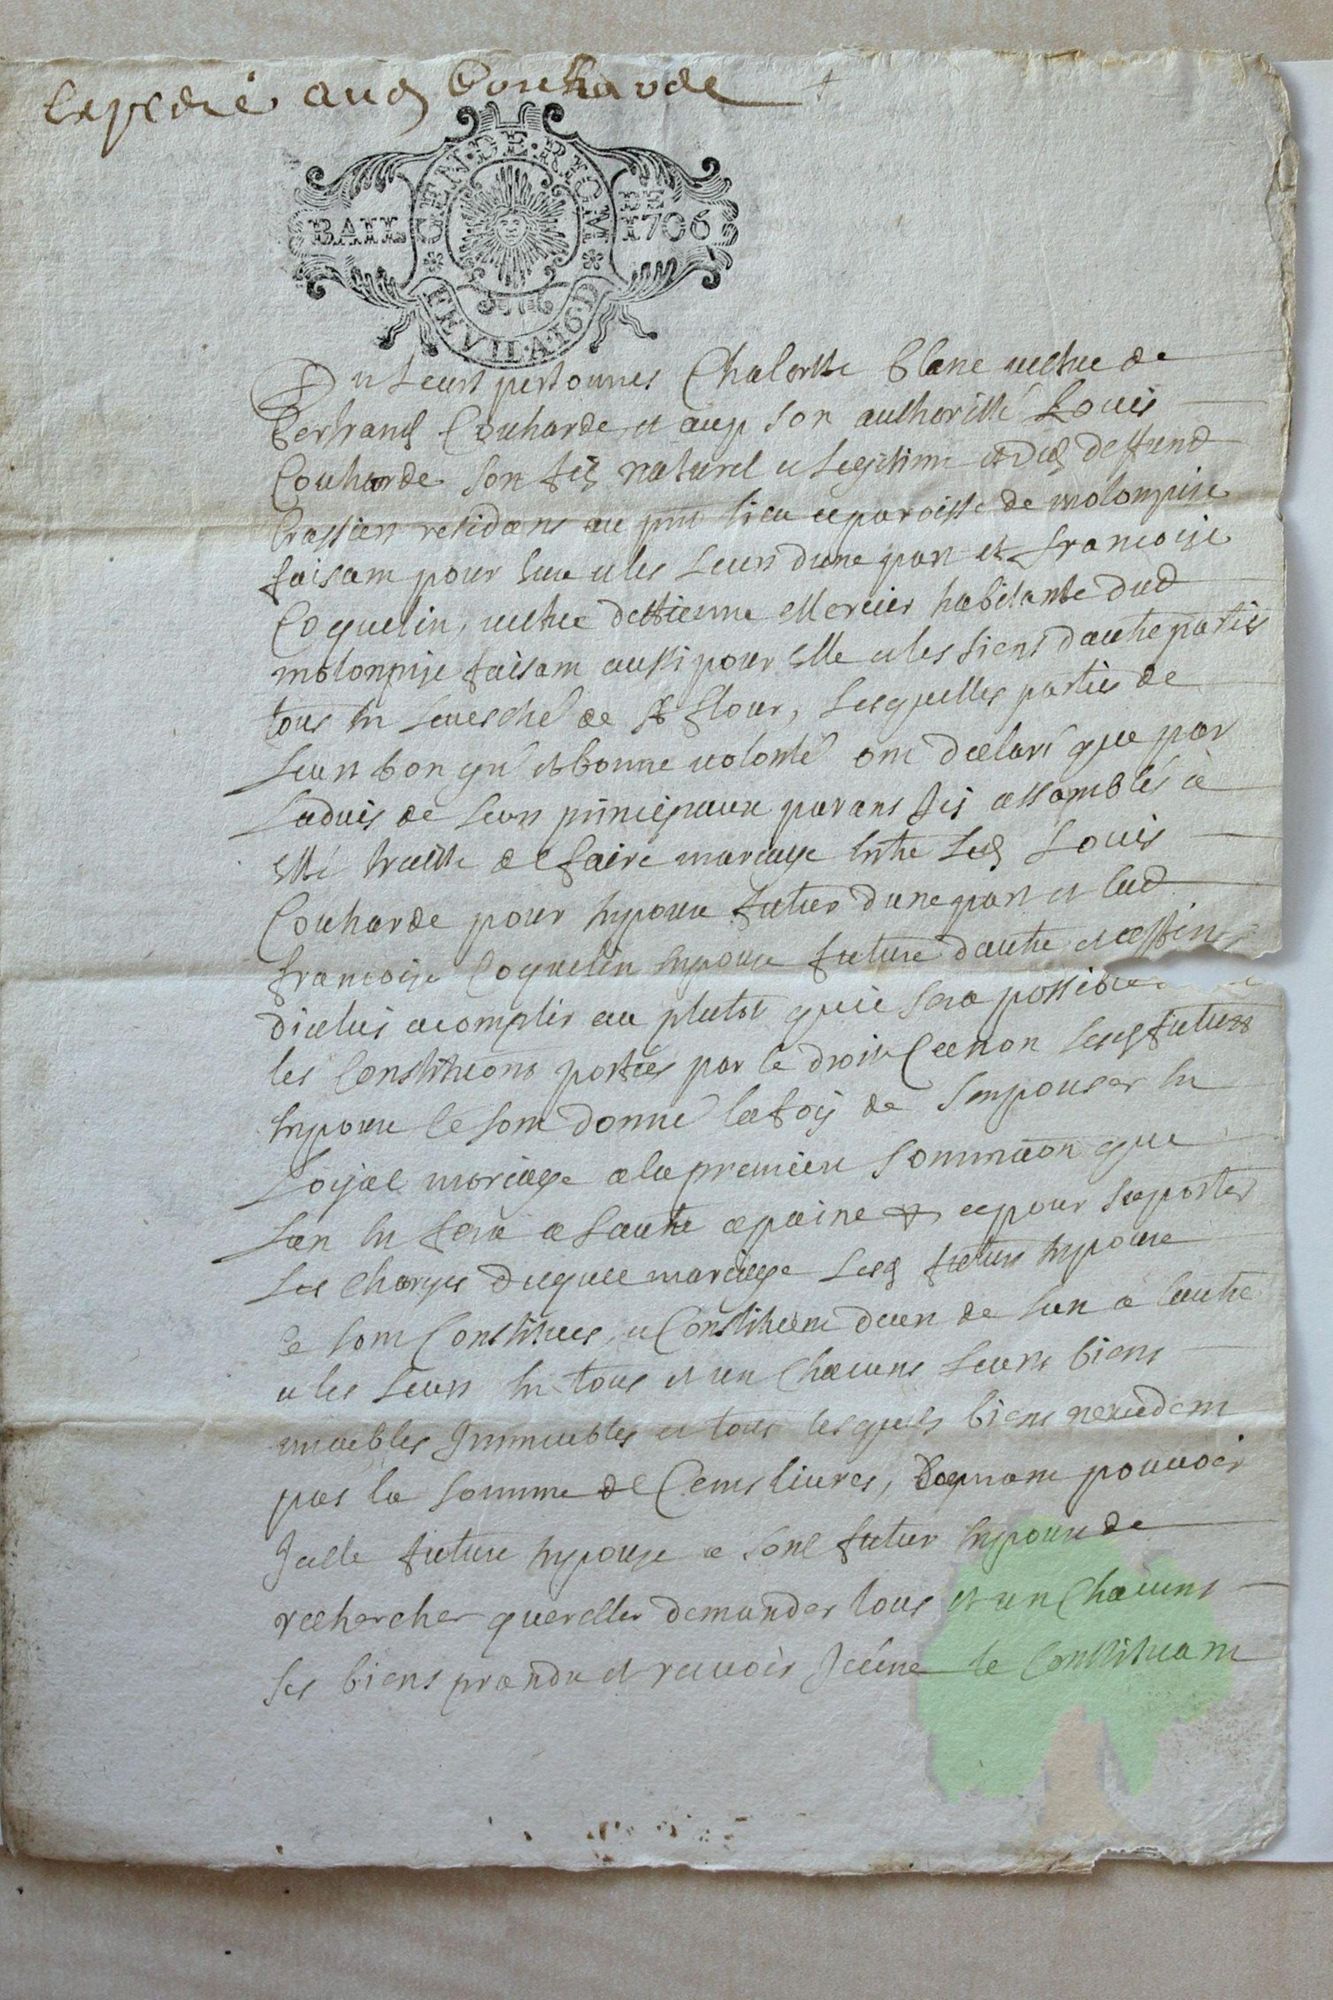 expedié aud Couharde
BAIL GEN · DE · RIOM DE 1706
FEVIL · A · 16 · D
En Leurs personnes Chalorthe blanc vefve de
Bertrand Couharde et aup son authoritté Louis
Couharde son fis naturel et Legitime et dud deffund
residans au pnt lieu et paroisse de molompise
faisam pour eux et les Leurs dune part et francoise
Coquelin, vefve dettienne Mercier habitante dud
molompise faisam aussi pour Elle et les siens dautre parties
tous en Levesché de St flour, Lesquelles parties de
Leurs bon gré et bonne volonté ont declaré que par
Ladvis de Leurs principaux parans Jci assamblés a
Esté traitté de faire mariage entre Led Louis
Couharde pour espoux futur dune part et lad
francoise Coquelin espouse future dautre et affin
dicelui acomplir au plutot quil sera possible
les Constitutions portées par le droit Canon Lesd futurs
espoux se sont donné la foy de Sespouser en
Loyal mariage a la premiere Sommaon que
Lun en fera a Lautre a paine & et pour Suporter
Les charges duquel mariage Lesd futurs espoux
Se sont Constitués et Constituent dun de Lun a Lautre
et les Leurs en tous et un Chacuns Leurs biens
muebles Jmmuebles et tous lesquels biens nexcedent
pas la somme de Cens livres, donnant pouvoir
Jcelle future espouse a sond futur espoux de
rechercher quereller demander tous et un Chacuns
Ses biens prandre et recevoir Jceux le Constituant